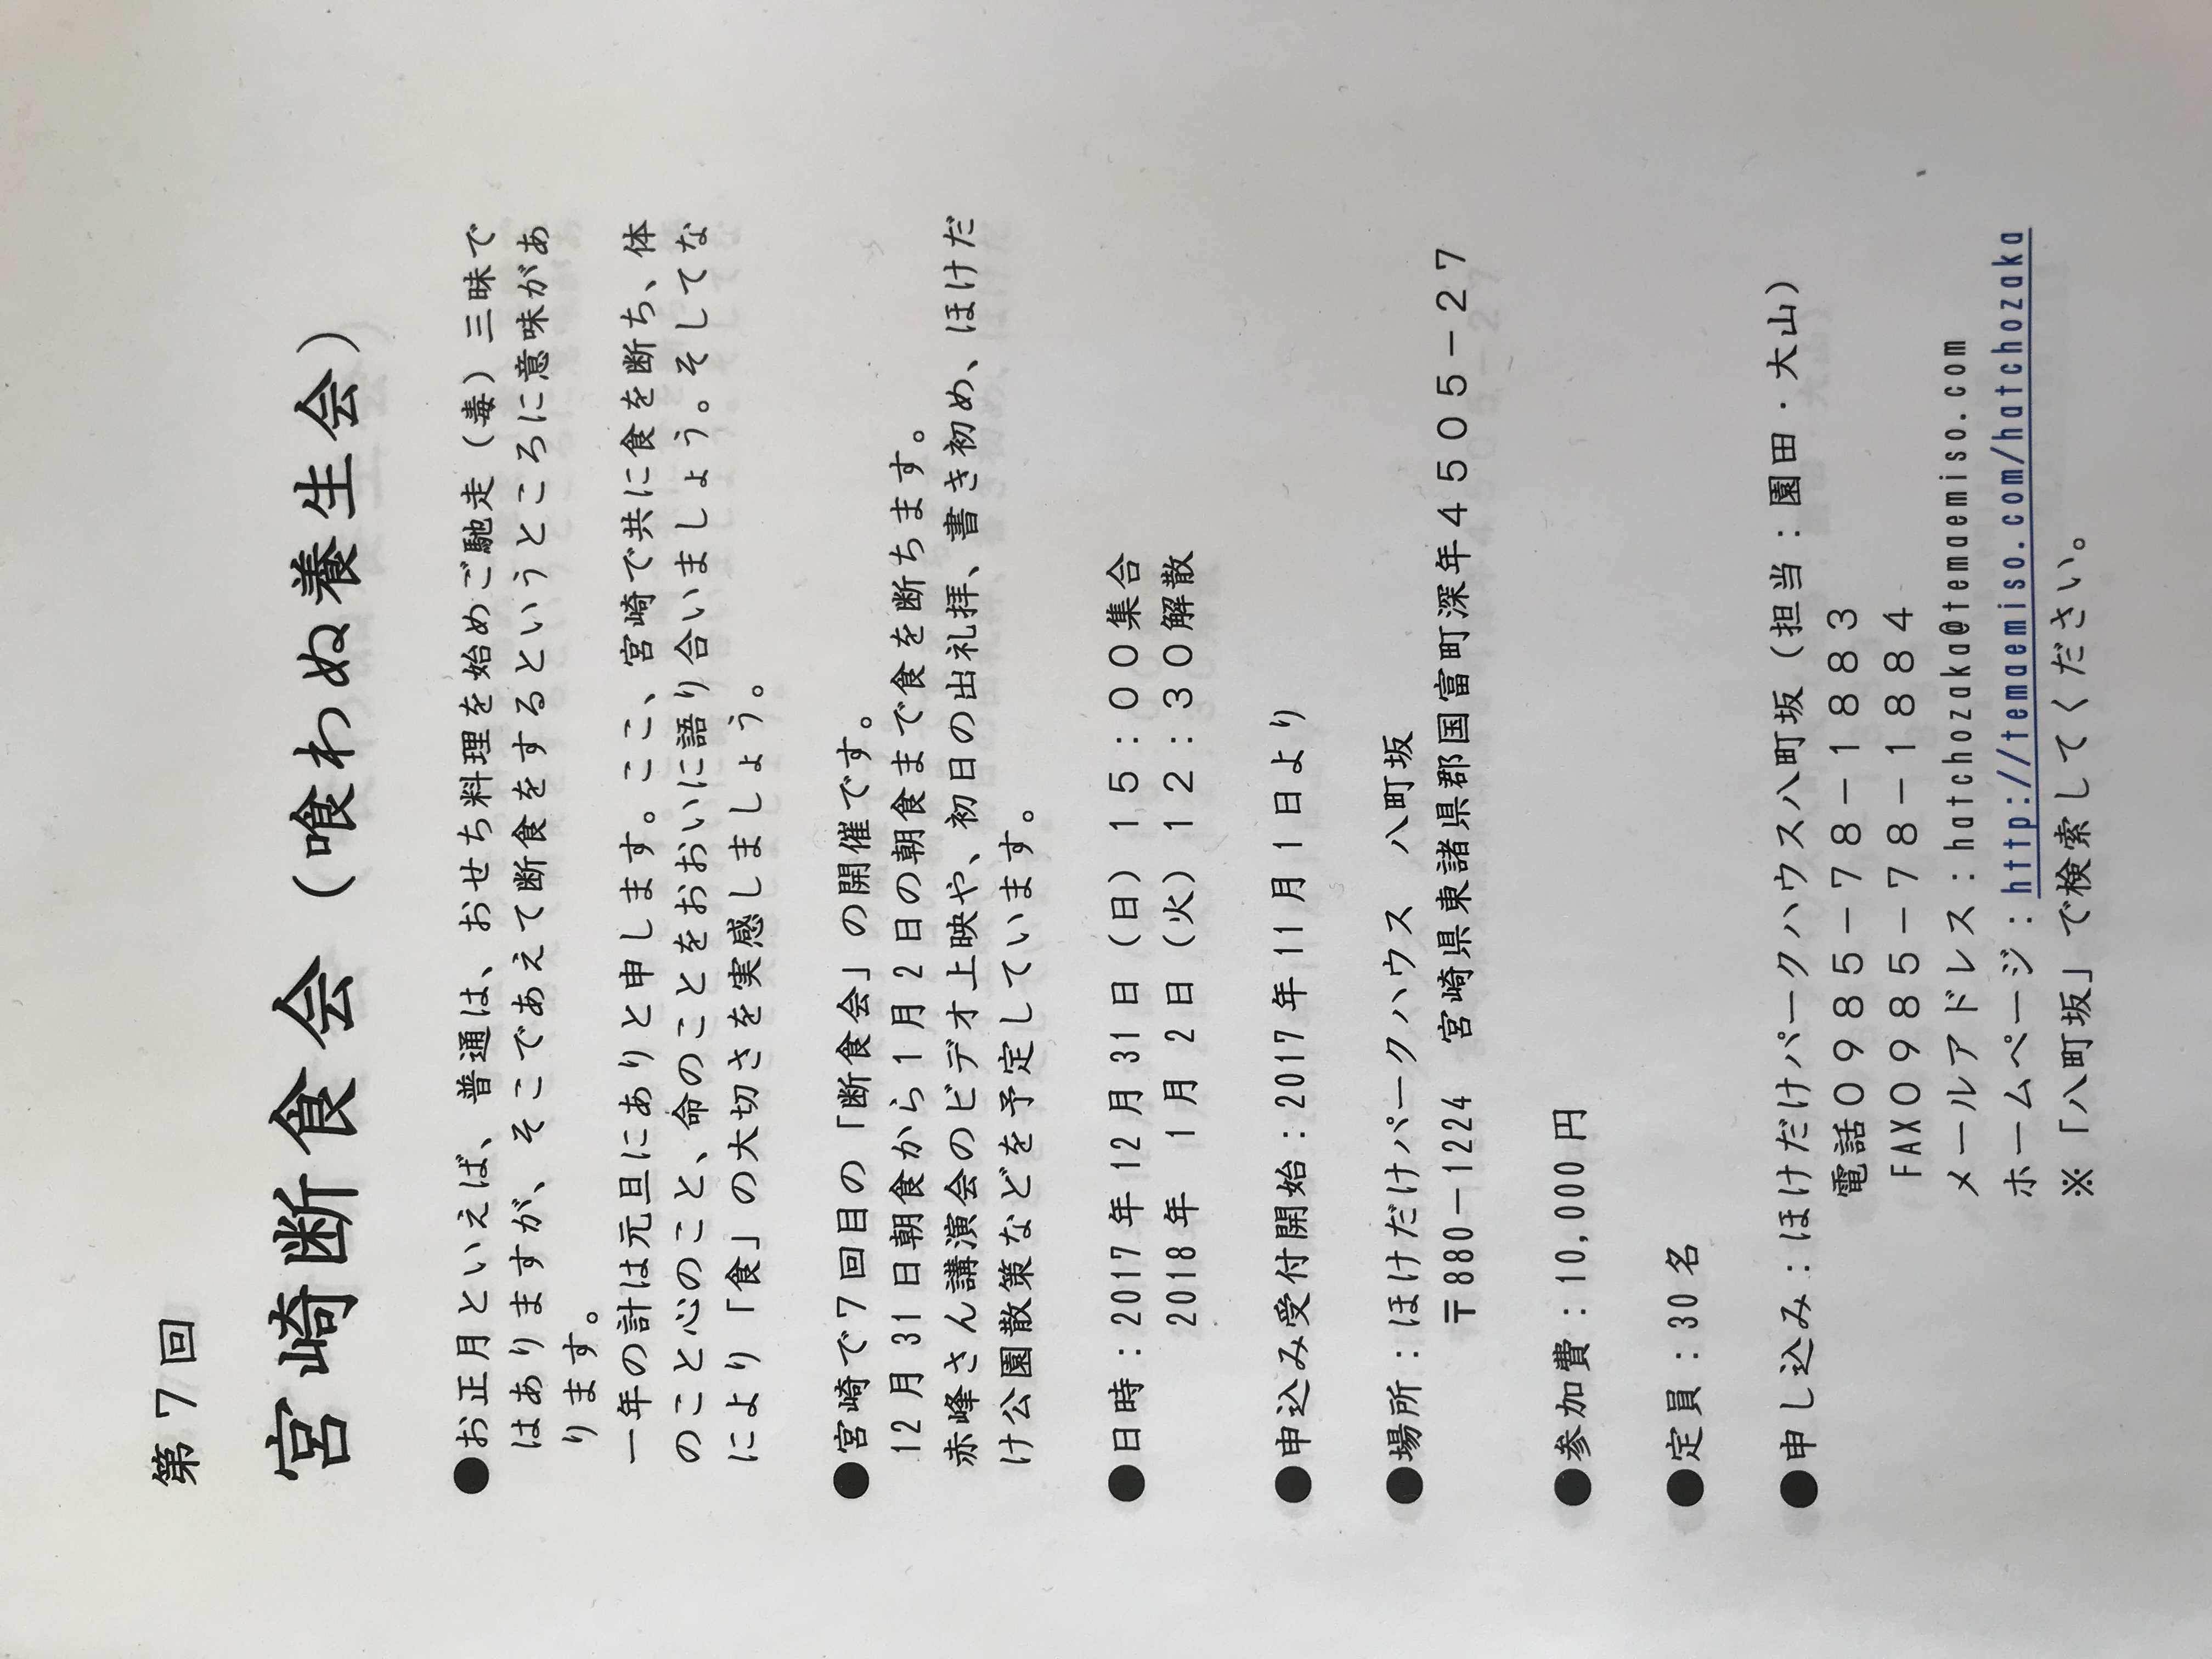 第７回
宮崎断食会（喰わぬ養生会）
●お正月といえば、普通は、おせち料理を始めご馳走（毒）三昧で
はありますが、そこであえて断食をするというところに意味があ
ります。
一年の計は元旦にありと申します。ここ、宮崎で共に食を断ち、体
のこと心のこと、命のことをおおいに語り合いましょう。そしてな
により「食」の大切さを実感しましょう。
●宮崎で７回目の「断食会」の開催です。
12月31日朝食から1月2日の朝食まで食を断ちます。
赤峰さん講演会のビデオ上映や、初日の出礼拝、書き初め、ほけだ
け公園散策などを予定しています。
●日時：2017年12月31日（日）１５：００集合
2018年　1月　2日（火）１２：３０解散
●申込み受付開始：2017年11月1日より
●場所：ほけだけパークハウス　八町坂
〒880－1224　宮崎県東諸県郡国富町深年４５０５－２７
●参加費：10,000円
●定員：30名
●申し込み：ほけだけパークハウス八町坂（担当：園田・大山）
電話０９８５－７８－１８８３
FAX０９８５－７８－１８８４
メールアドレス：hatchozaka@temaemiso.com
ホームページ：http://temaemiso.com/hatchozaka
※「八町坂」で検索してください。